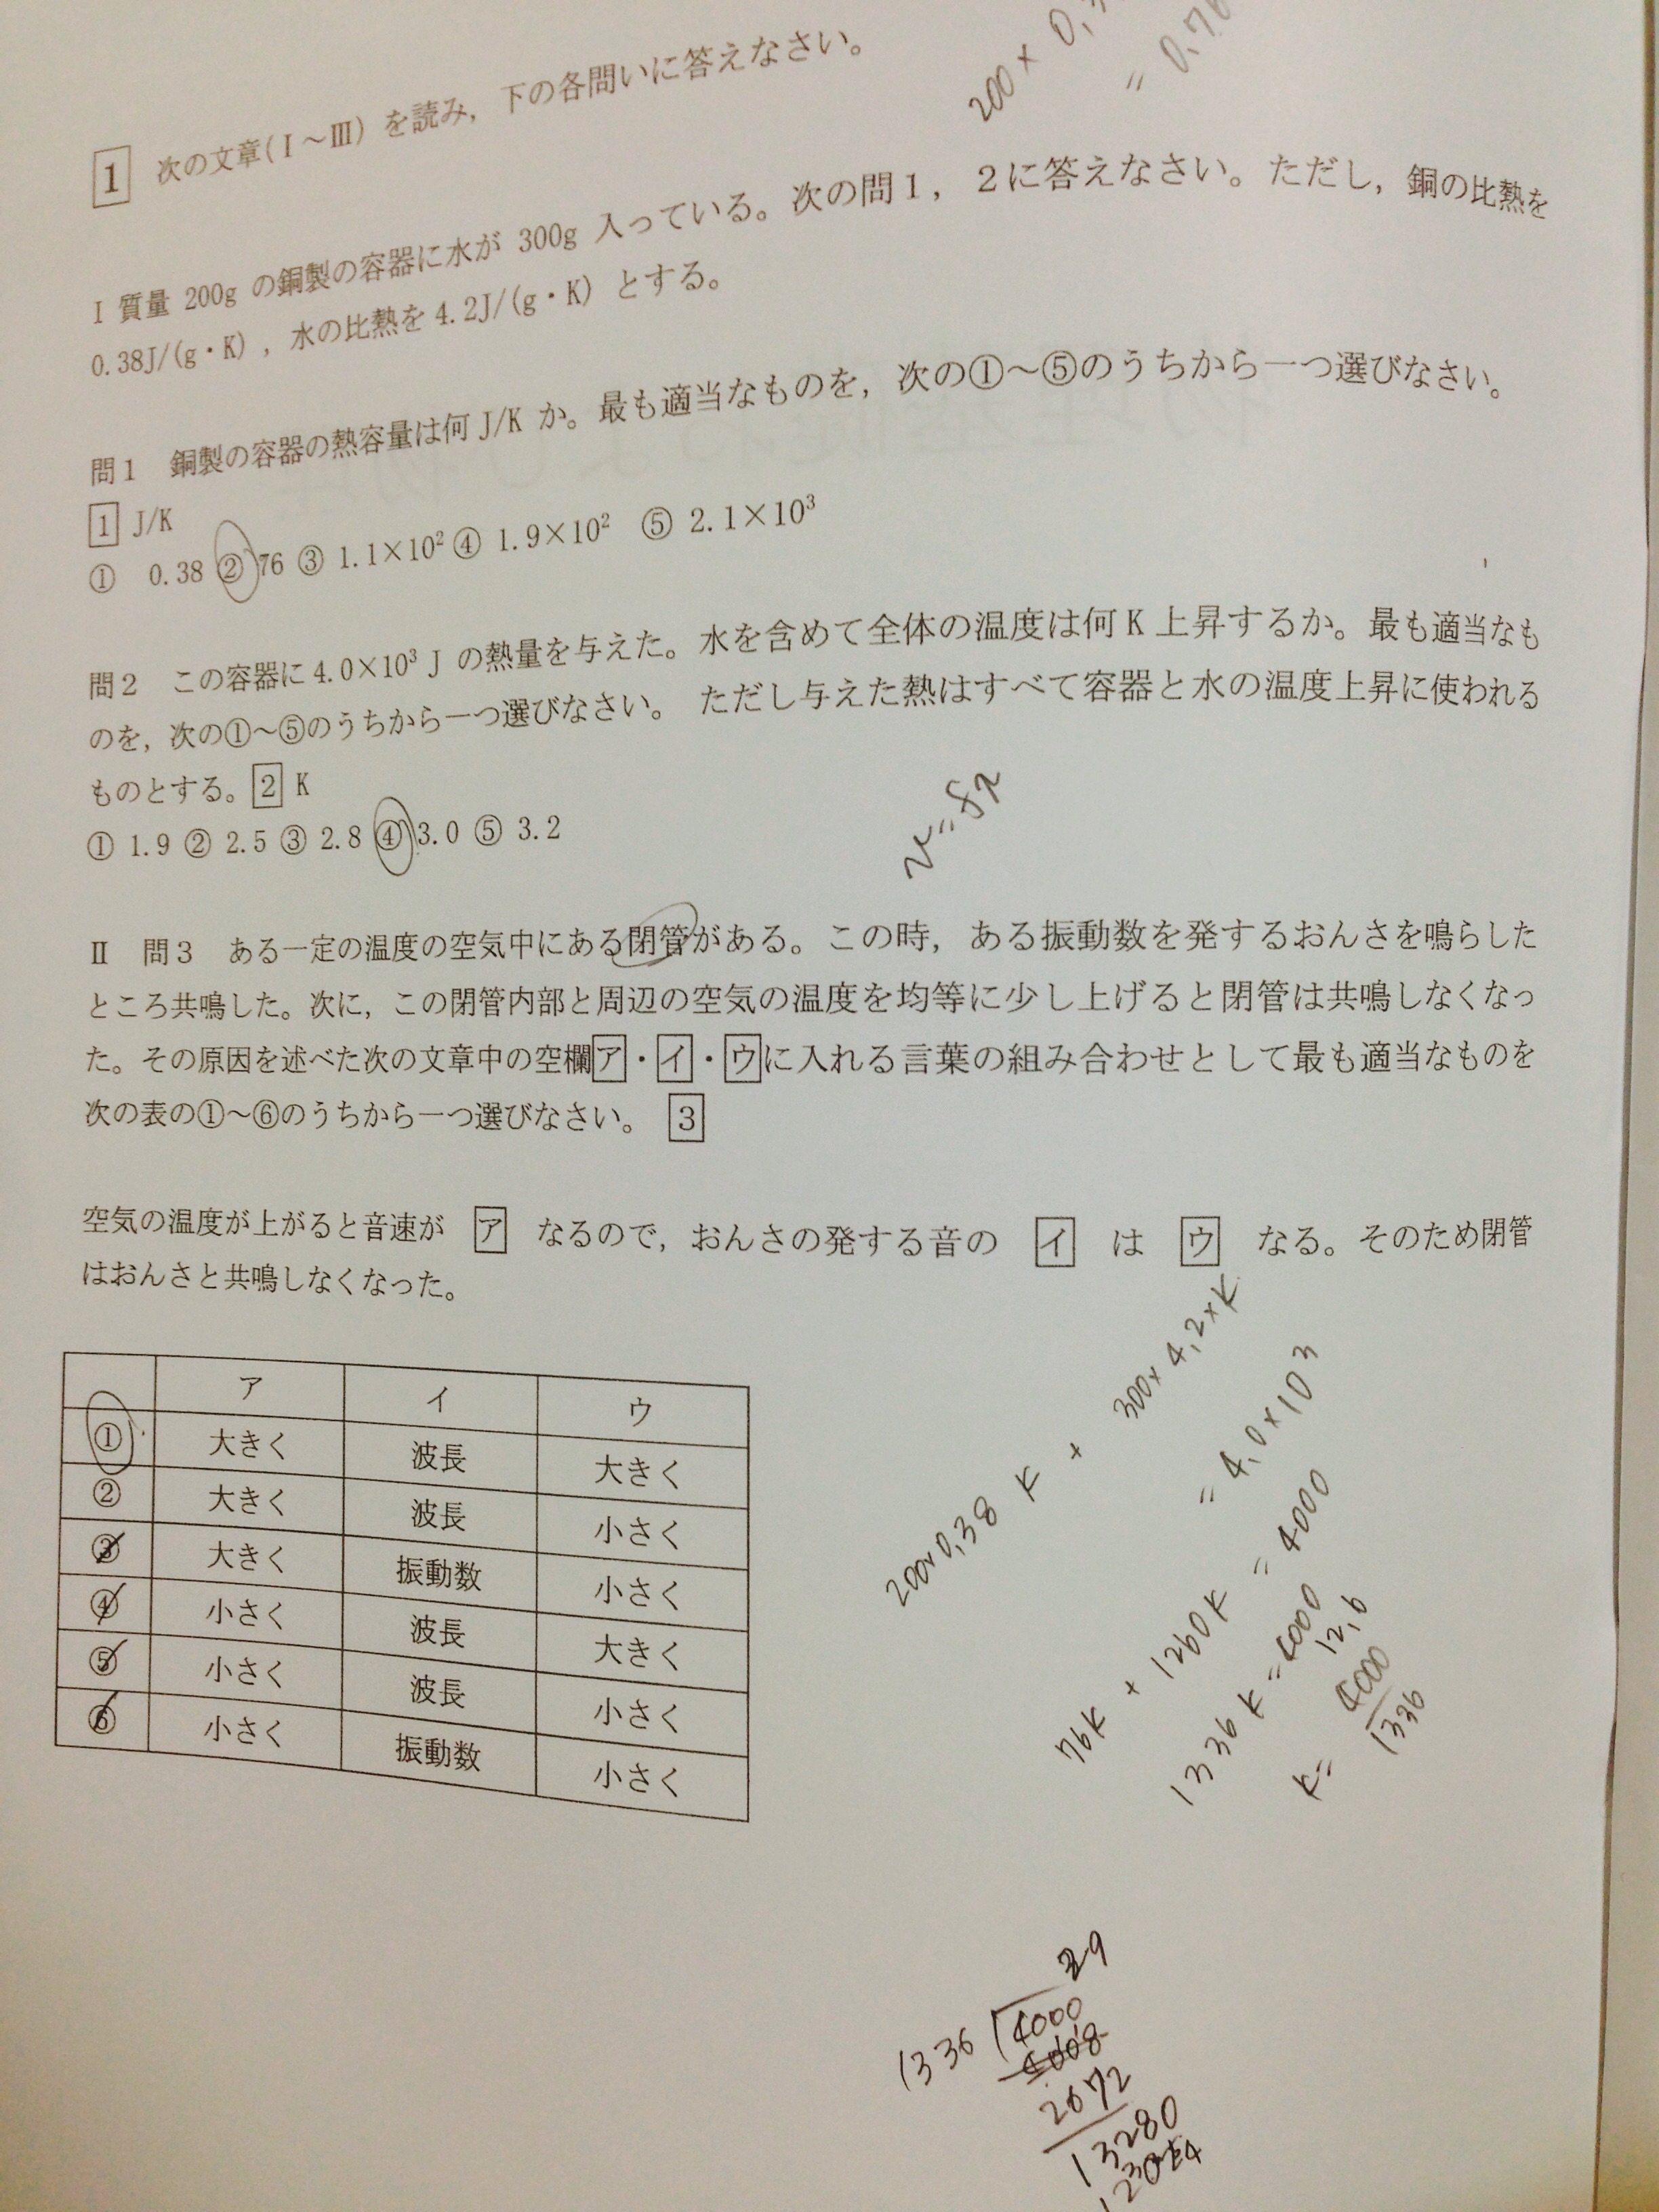 1 次の文章(Ⅰ～Ⅲ) を読み，下の各問いに答えなさい。
200 × 0,3
= 0,76
Ⅰ 質量 200g の銅製の容器に水が 300g 入っている。次の問１，２に答えなさい。ただし，銅の比熱を
0.38J/(g・K) ，水の比熱を 4.2J/(g・K) とする。
問１ 銅製の容器の熱容量は何 J/K か。最も適当なものを，次の①～⑤のうちから一つ選びなさい。
1 J/K
① 0.38 ② 76 ③ 1.1×10² ④ 1.9×10² ⑤ 2.1×10³
問２ この容器に 4.0×10³ J の熱量を与えた。水を含めて全体の温度は何 K 上昇するか。最も適当なも
のを，次の①～⑤のうちから一つ選びなさい。 ただし与えた熱はすべて容器と水の温度上昇に使われる
ものとする。 2 K
① 1.9 ② 2.5 ③ 2.8 ④ 3.0 ⑤ 3.2
v=fλ
Ⅱ 問３ ある一定の温度の空気中にある閉管がある。この時，ある振動数を発するおんさを鳴らした
ところ共鳴した。次に，この閉管内部と周辺の空気の温度を均等に少し上げると閉管は共鳴しなくなっ
た。その原因を述べた次の文章中の空欄ア・イ・ウに入れる言葉の組み合わせとして最も適当なものを
次の表の①～⑥のうちから一つ選びなさい。 3
空気の温度が上がると音速が ア なるので，おんさの発する音の イ は ウ なる。そのため閉管
はおんさと共鳴しなくなった。
ア イ ウ
① 大きく 波長 大きく
② 大きく 波長 小さく
③ 大きく 振動数 小さく
④ 小さく 波長 大きく
⑤ 小さく 波長 小さく
⑥ 小さく 振動数 小さく
200×0,38 K + 300×4,2×K
= 4,0×10 3
76K + 1260K = 4000
1336K = 4000
12,6
K= 4000
1336
29
1336 4000
4008
2672
13280